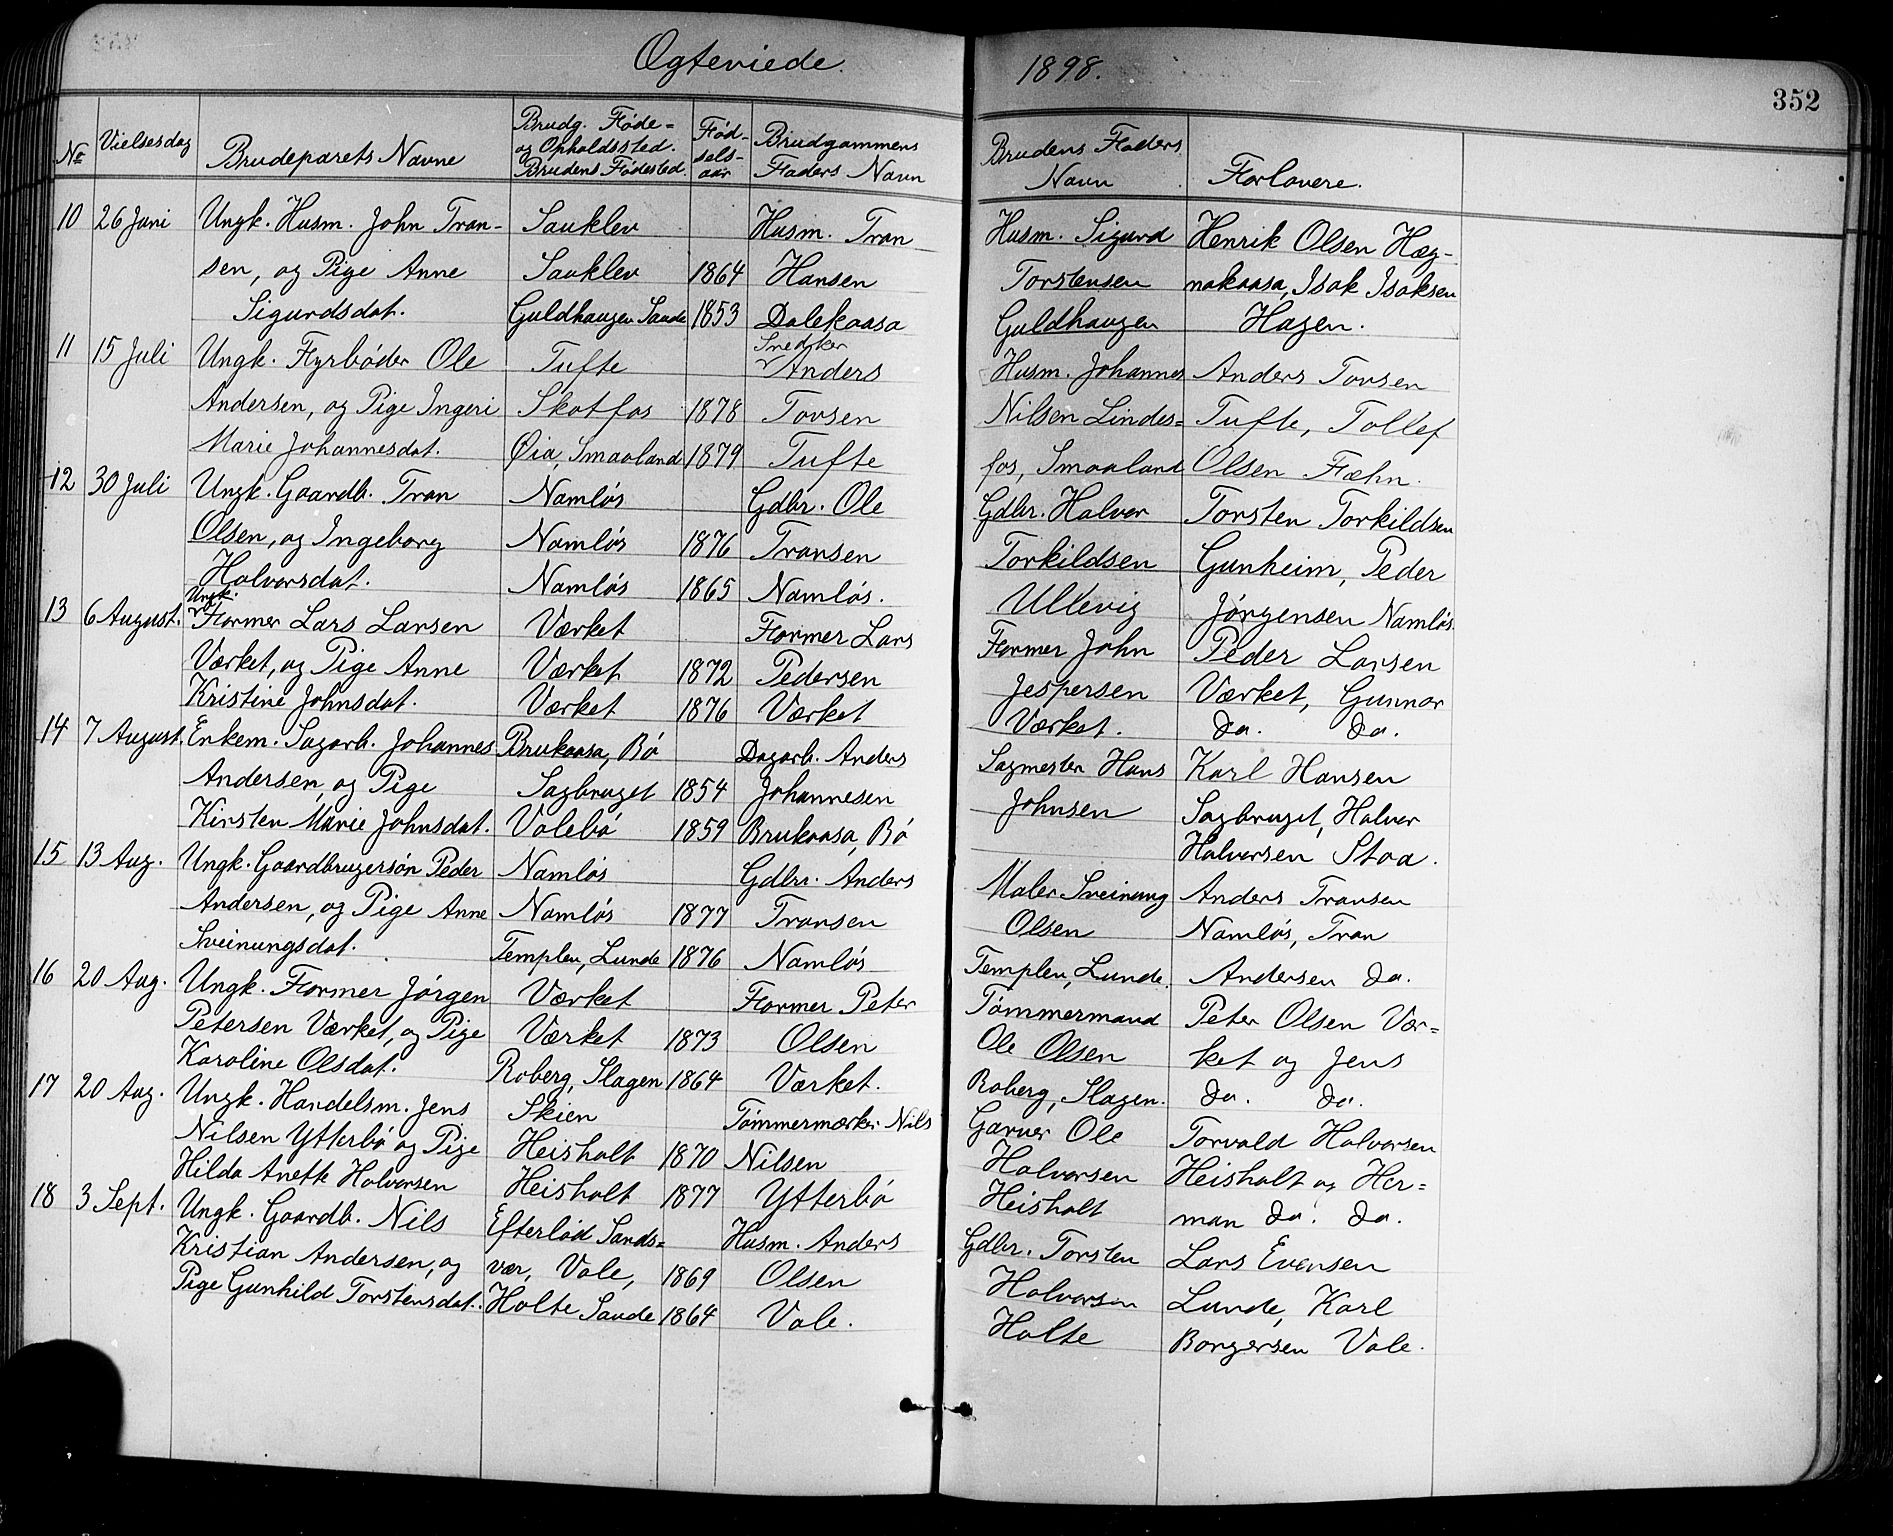 Ogteviede. 1898.
352
No Vielsesdag Brudeparets Navne Brudg. Føde= og Opholdssted. Brudens Fødested. Fød-sels-aar Brudgommens Faders Navn Brudens Faders Navn Forlovere.
10 26 Juni Ungk. Husm. John Tran- Sauklev Husm. Tran Husm. Sigurd Henrik Olsen Hæg-
sen, og Pige Anne Sauklev 1864 Hansen Torstensen nakaasa, Isak Isaksen
Sigurdsdat. Guldhaugen Saude 1853 Dalekaasa Guldhaugen Hagen.
11 15 Juli Ungk. Fyrbøder Ole Tufte Snedker Anders Husm. Johannes Anders Tovsen
Andersen, og Pige Ingeri Skotfos 1878 Tovsen Nilsen Lindes= Tufte, Tollef
Marie Johannesdat. Øia, Smaaland 1879 Tufte fos, Smaaland Olsen Fæhn.
12 30 Juli Ungk. Gaardb. Tran Namløs Gdbr. Ole Gdbr. Halvor Torsten Torkildsen
Olsen, og Ingeborg Namløs 1876 Transen Torkildsen Gunheim, Peder
Halvorsdat. Namløs 1865 Namløs. Ullevig Jørgensen Namløs.
13 6 August. Ungk. Former Lars Larsen Værket Former Lars Former John Peder Larsen
Værket, og Pige Anne Værket 1872 Pedersen Jespersen Værket, Gunnar
Kristine Johnsdat. Værket 1876 Værket Værket. do. do.
14 7 August. Enkem. Sagarb. Johannes Brukaasa, Bø Dagarb. Anders Sagmester Hans Karl Hansen
Andersen, og Pige Sagbruget 1854 Johannesen Johnsen Sagbruget, Halvor
Kirsten Marie Johnsdat. Valebø 1859 Brukaasa, Bø Halvorsen Stoa.
15 13 Aug. Ungk. Gaardbrugersøn Peder Namløs Gdbr. Anders Maler Sveinung Anders Transen
Andersen, og Pige Anne Namløs 1877 Transen Olsen Namløs, Tran
Sveinungsdat. Templen, Lunde 1876 Namløs Templen, Lunde. Andersen do.
16 20 Aug. Ungk. Former Jørgen Værket Former Peter Tømmermand Peter Olsen Vær=
Petersen Værket, og Pige Værket 1873 Olsen Ole Olsen ket og Jens
Karoline Olsdat. Roberg, Slagen 1864 Værket. Roberg, Slagen. do. do.
17 20 Aug. Ungk. Handelsm. Jens Skien Tømmermærker Nils Garver Ole Torvald Halvorsen
Nilsen Ytterbø og Pige Heisholt 1870 Nilsen Halvorsen Heisholt og Her=
Hilda Anette Halvorsen Heisholt 1877 Ytterbø Heisholt man do. do.
18 3 Sept. Ungk. Gaardb. Nils Efterlød Sands= Husm. Anders Gdbr. Torsten Lars Evensen
Kristian Andersen, og vær, Vale, 1869 Olsen Halvorsen Lunde, Karl
Pige Gunhild Torstensdat. Holte Saude 1864 Vale. Holte Borgersen Vale.